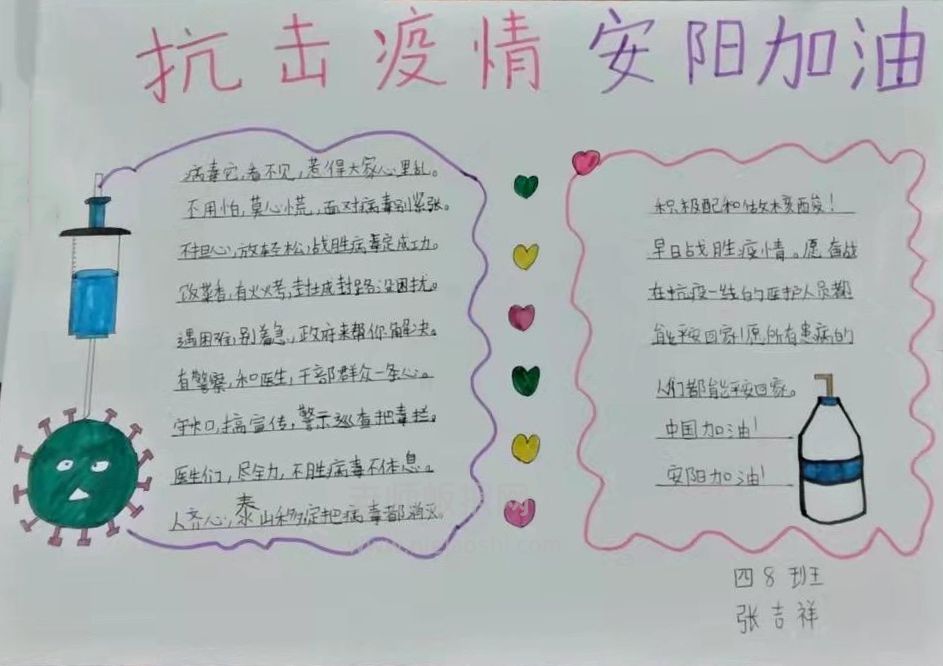 抗击疫情 安阳加油
病毒它,看不见,惹得大家心里乱。
不用怕,莫心慌,面对病毒别紧张。
不担心,放轻松,战胜病毒定成功。
有火考,封城封路没困扰。
遇困难,别着急,政府来帮你解决。
有警察,和医生,干部群众一条心。
守村口,搞宣传,警示巡查把毒拦。
医生们,尽全力,不胜病毒不休息。
人齐心,泰山移,定把病毒都消灭。
积极配和做核酸!
早日战胜疫情。愿奋战
在抗疫一线的医护人员都
能平安回家!愿所有患病的
人们都能平安回家。
中国加油!
安阳加油!
四8班
张吉祥